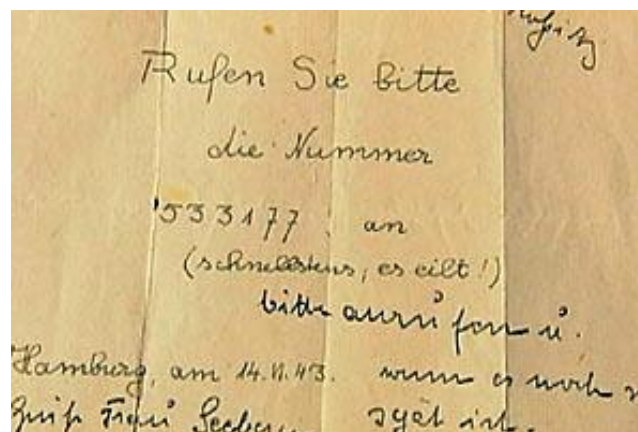 Rufen Sie bitte
die Nummer
533177. an
(schnellstens, es eilt!)
bitte anrufen u.
Hamburg, am 14.II.43. wenn es noch
Frau spät ist.